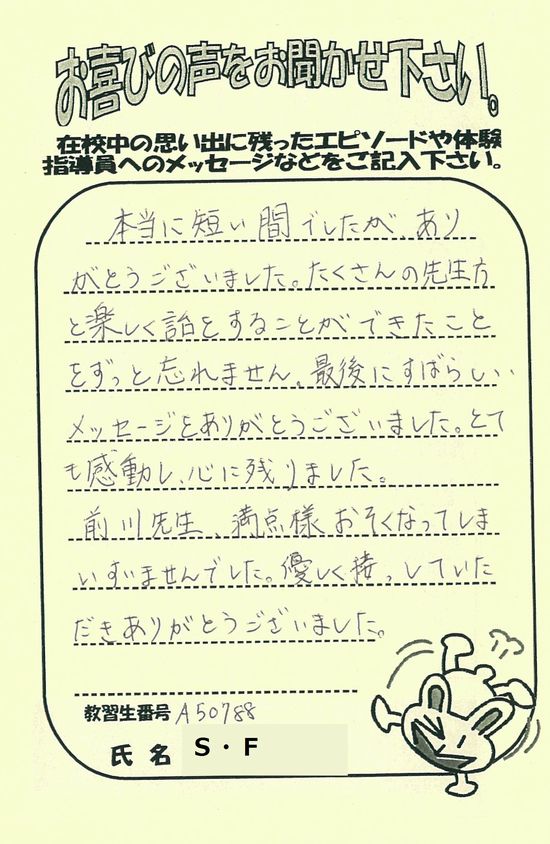 お喜びの声をお聞かせ下さい。
在校中の思い出に残ったエピソードや体験
指導員へのメッセージなどをご記入下さい。
本当に短い間でしたが、あり
がとうございました。たくさんの先生方
と楽しく話をすることができたこと
をずっと忘れません。最後にすばらしい
メッセージをありがとうございました。とて
も感動し、心に残りました。
前川先生、満点様おそくなってしま
いすいませんでした。優しく接っしていた
だきありがとうございました。
教習生番号 A50788
氏名 S・F